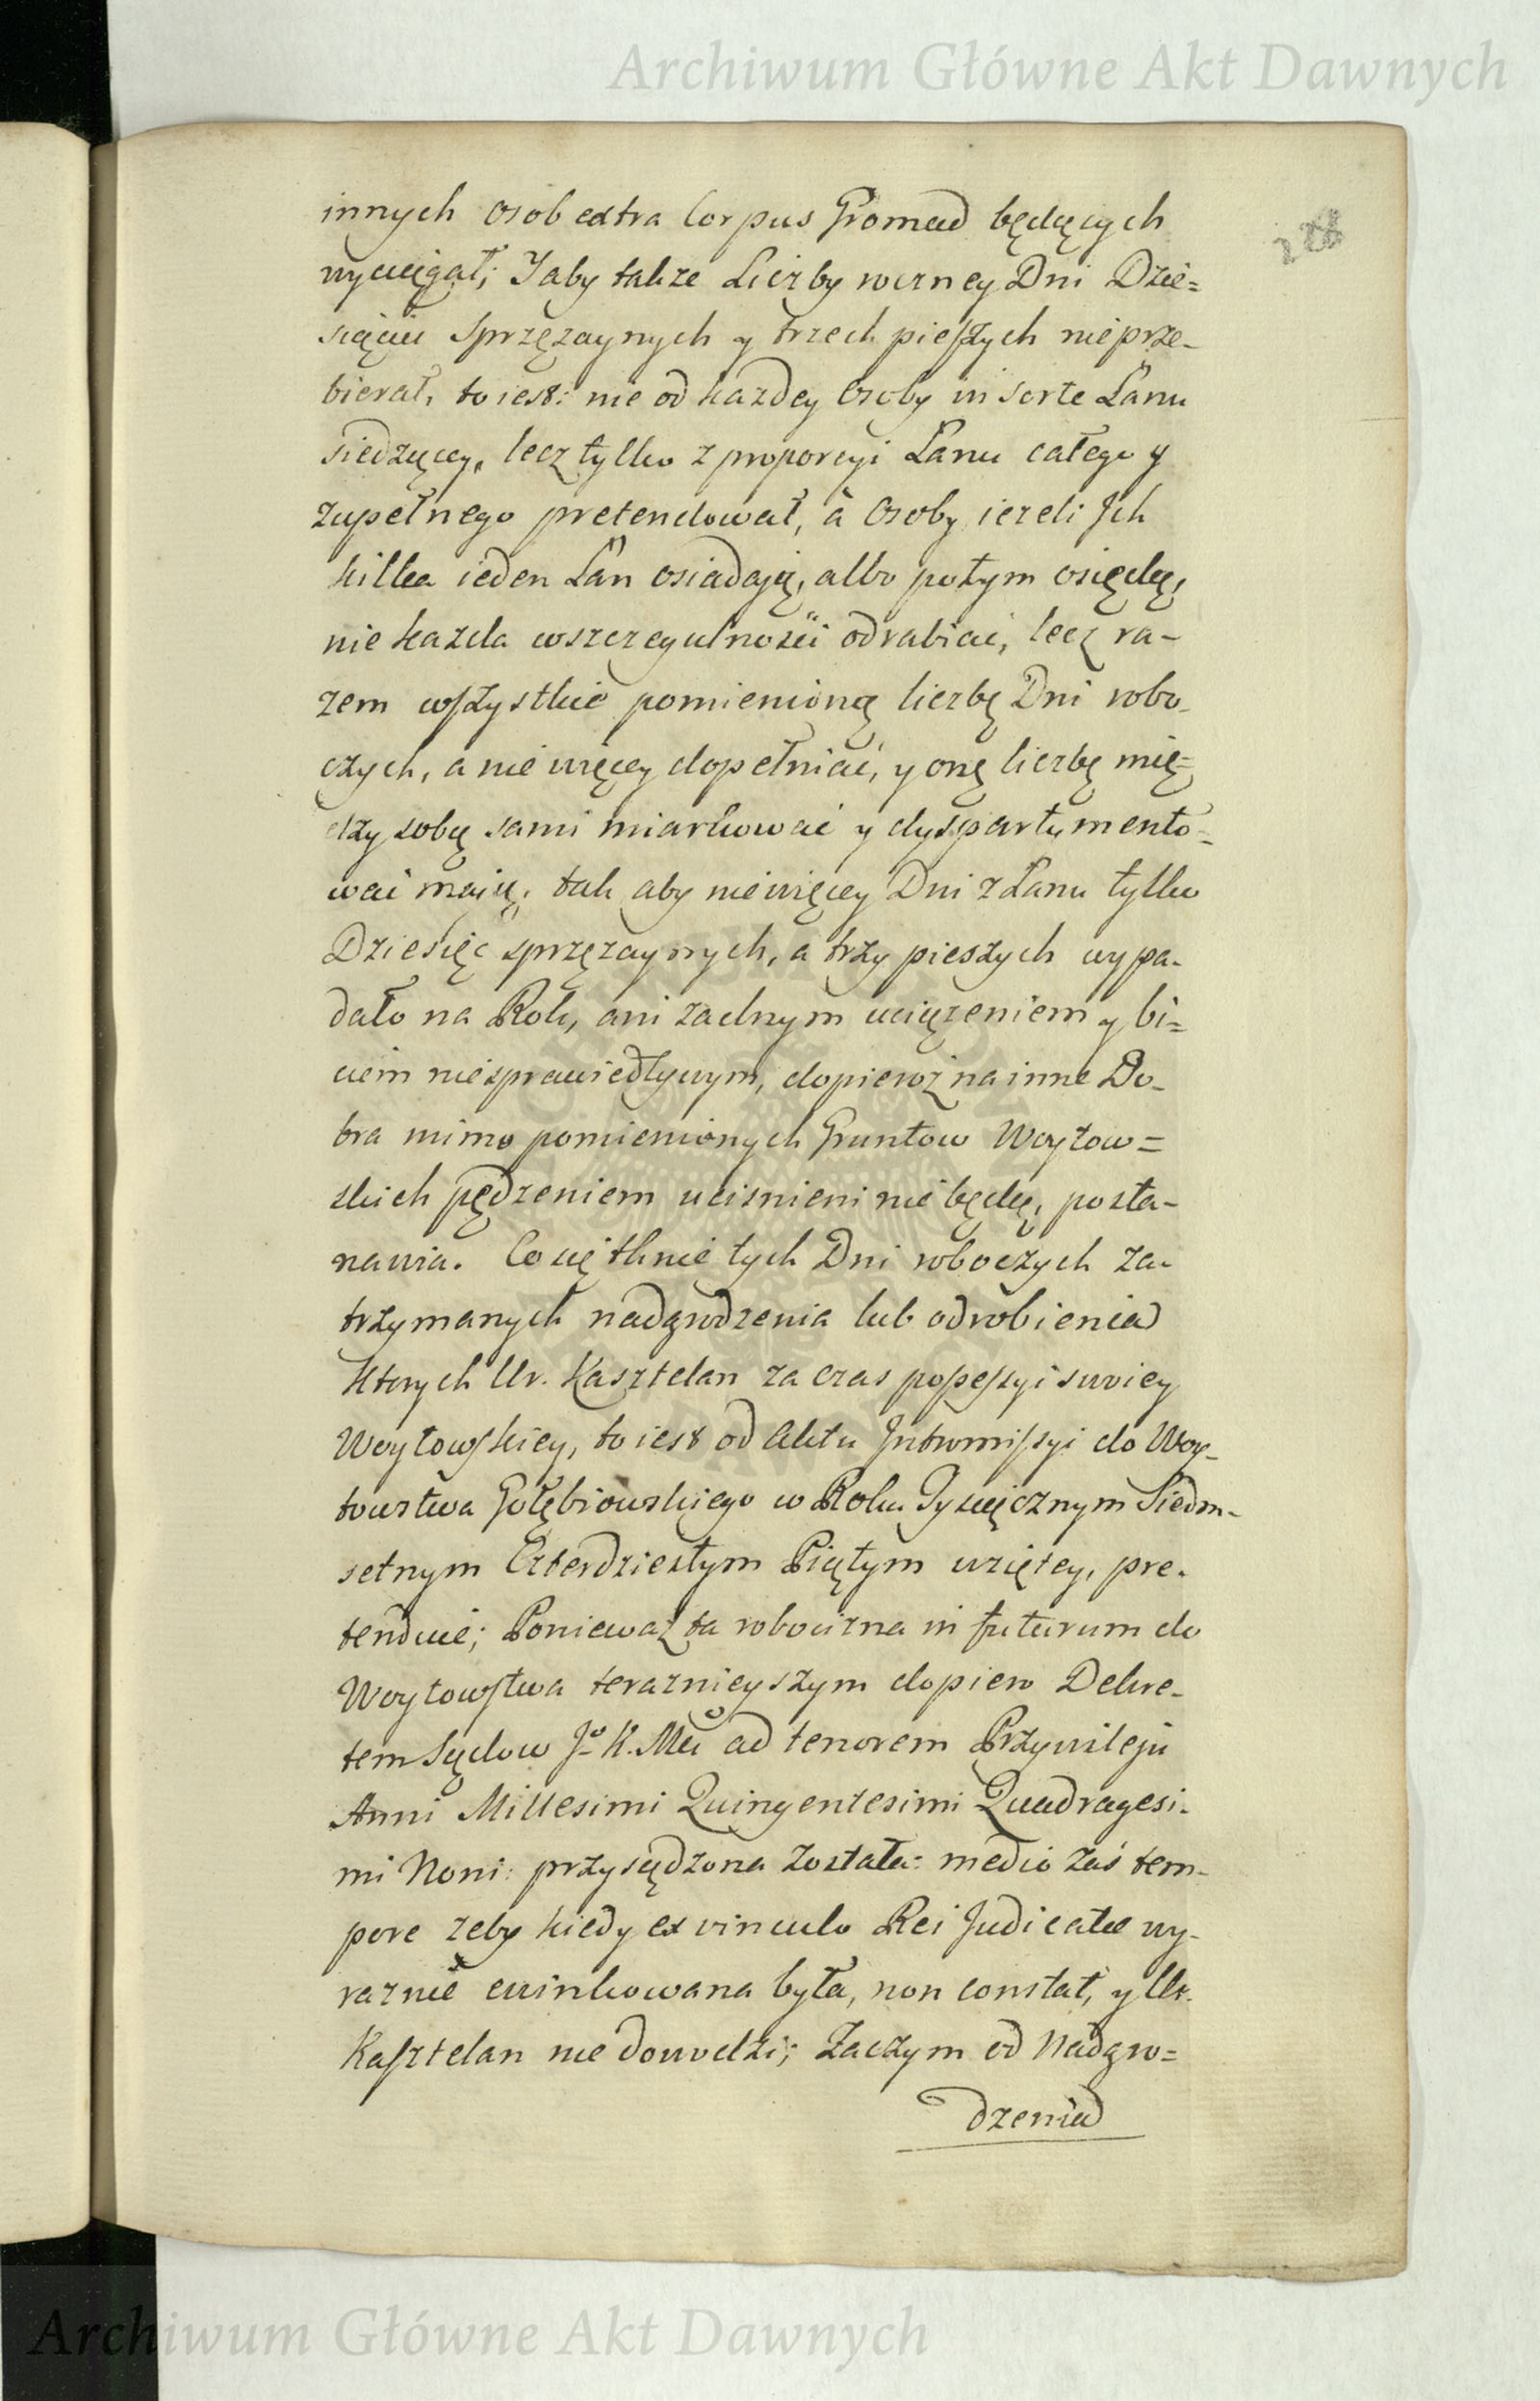 Archiwum Główne Akt Dawnych
228
innych osob extra Corpus Gromad będących
wyciągał; Y aby takze Liczby rocrney Dni Dzie=
sięciu Sprzęzaynych y trzech pieszych nieprze-
bierał, to iest: nie od kazdey Osoby in sorte Łanu
siedzącey, lecz tylko z proporcyi Łanu całego y
zupełnego pretendował, à Osoby iezeli Jch
kilka ieden Łan osiadaią, albo potym osiędą,
nie kazda wszczegulności odrabiać, lecz ra-
zem wszystkie pomienioną liczbę Dni robo-
czych, a nie więcey dopełniać, y onę liczbę mię=
dzy sobą sami miarkować y dyspartymento=
wać maią, tak aby niewięcey Dni z Łanu tylko
Dziesięć sprzęzaynych, a trzy pieszych wypa-
dało na Rok, ani zadnym uciązeniem y bi=
ciem niesprawiedlywym, dopieroż na inne Do-
bra mimo pomienionych Gruntow Woytow=
skich pędzeniem uciśnieni nie będą, posta-
nawia. Co się tknie tych Dni roboczych za-
trzymanych nadgrodzenia lub odrobienia
Ktorych Ur. Kasztelan za czas possessyi swoiey
Woytowskiey, to iest od Aktu Intromissyi do Woy-
towstwa Gołębiowskiego w Roku Tysiącznym Siedm-
setnym Czterdziestym Piątym wziętey, pre-
tenduie; Ponieważ ta robocizna in futurum do
Woytowstwa teraznieyszym dopiero Dekre-
tem Sądow Jo K. Mci ad tenorem Przywileju
Anni Millesimi Quingentesimi Quadragesi-
mi Noni: przysądzona została: medio zaś tem-
pore zeby kiedy ex vinculo Rei Judicatæ wy-
raznie ewinkowana była, non constat, y Ur.
Kasztelan nie dowodzi; Zaczym od Nadgro=
dzenia
Archiwum Główne Akt Dawnych